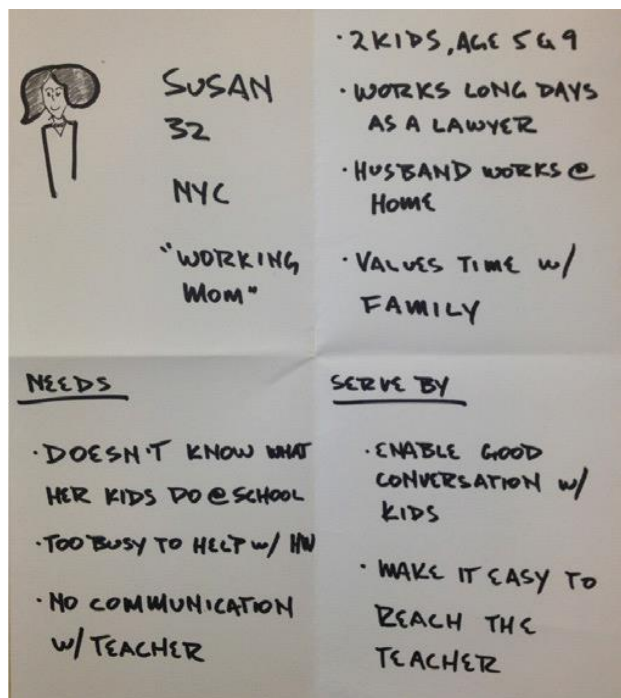 SUSAN
32
NYC
"WORKING
MOM"
· 2 KIDS, AGE 5 & 9
· WORKS LONG DAYS
AS A LAWYER
· HUSBAND WORKS @
HOME
· VALUES TIME W/
FAMILY
NEEDS
· DOESN'T KNOW WHAT
HER KIDS DO @ SCHOOL
· TOO BUSY TO HELP W/ HW
· NO COMMUNICATION
W/ TEACHER
SERVE BY
· ENABLE GOOD
CONVERSATION W/
KIDS
· MAKE IT EASY TO
REACH THE
TEACHER